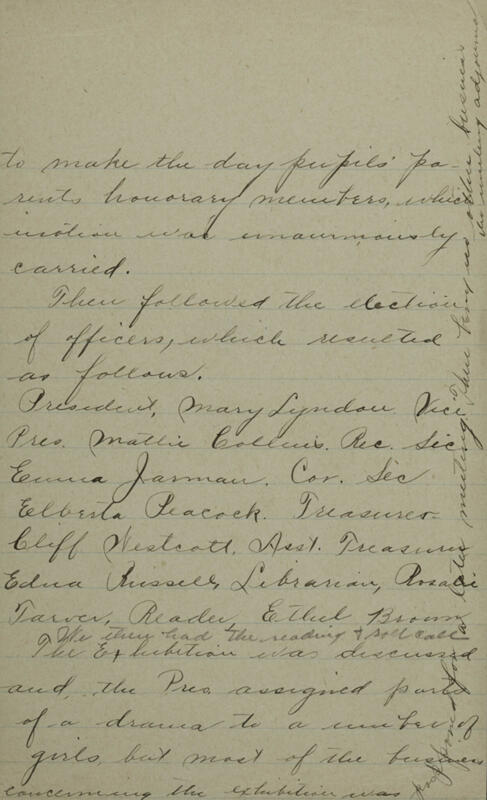 to make the day pupils' pa-
rents honorary members, which
motion was unanimously
carried.
Then followed the election
of officers, which resulted
as follows.
President, Mary Lyndon Vice
Pres. Mattie Collins. Rec. Sec
Emma Jarman. Cor. Sec
Elberta Peacock. Treasurer
Cliff Westcott. Asst. Treasurer
Edna Russell, Librarian, Rosalie
Tarver, Reader, Ethel Brown
We then had the reading & roll call
The Exhibition was discussed
and, the Pres assigned parts
of a drama to a number of
girls, but most of the business
concerning the exhibition was
postponed for a later meeting. There being no other business
the meeting adjourned